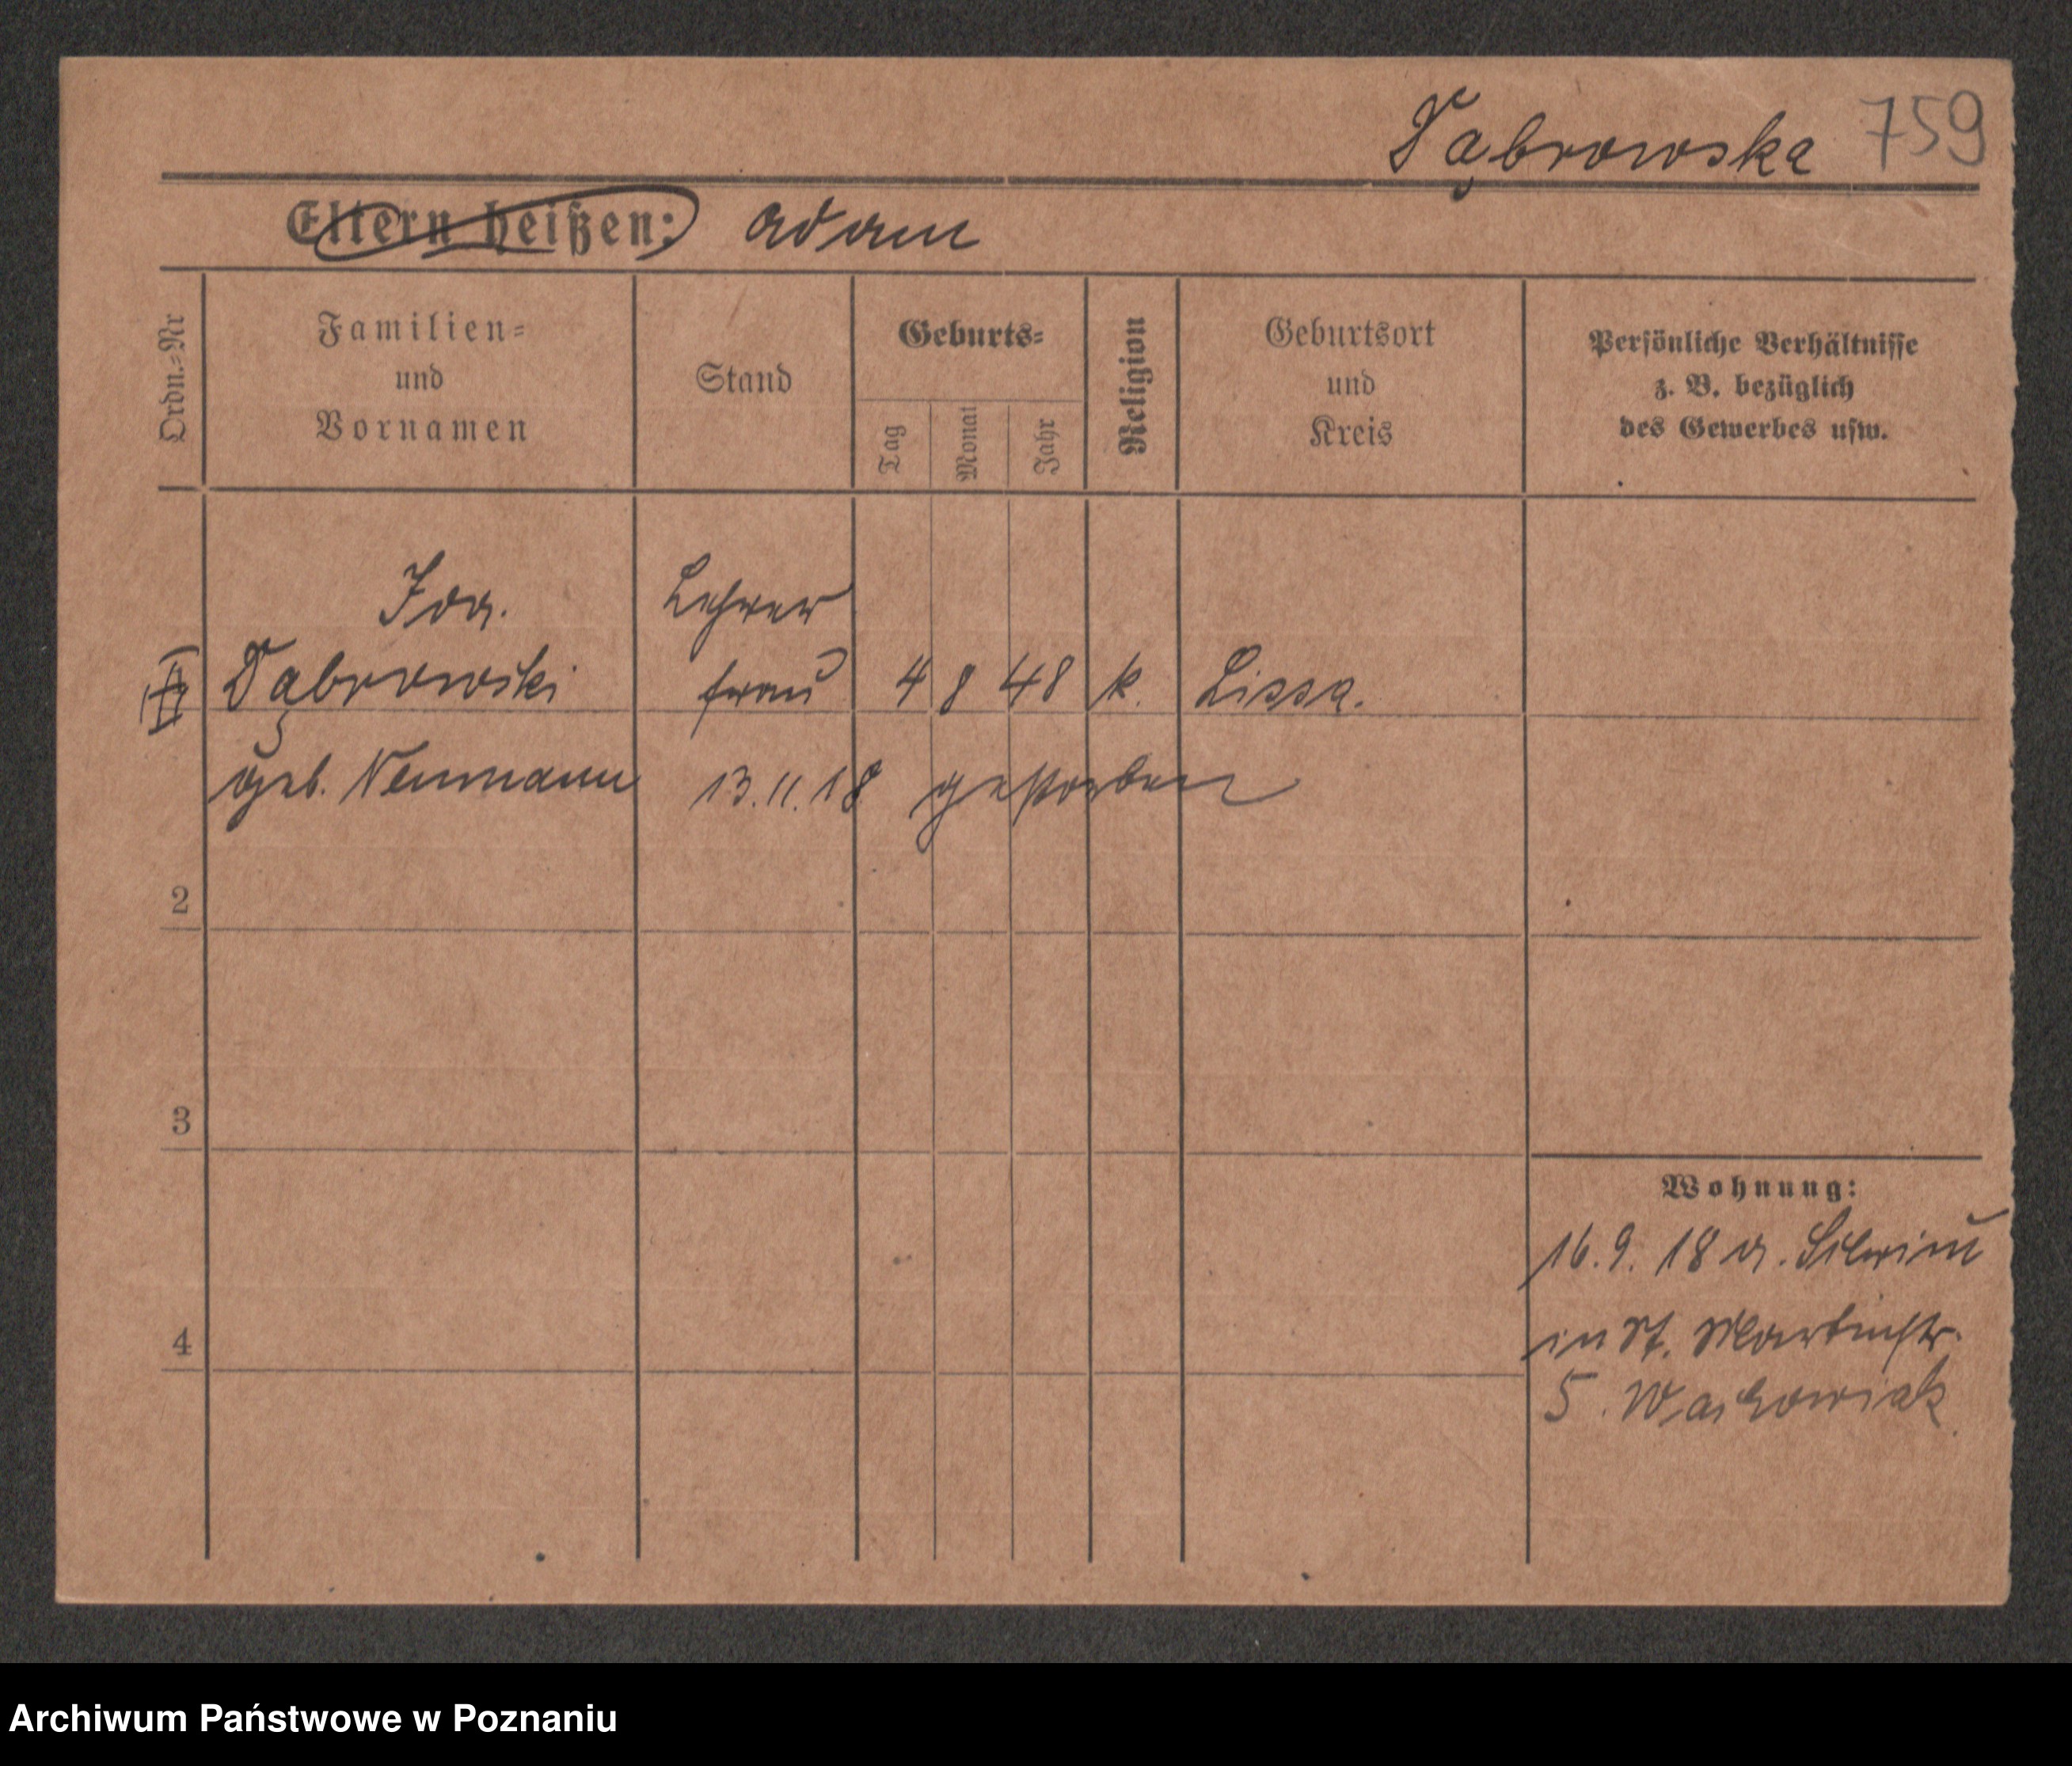 Dąbrowska 759
Eltern heißen: Adam
Ordn.-Nr
Familien-
und
Vornamen
Stand
Geburts-
Tag
Monat
Jahr
Religion
Geburtsort
und
Kreis
Persönliche Verhältnisse
z. B. bezüglich
des Gewerbes usw.
Lehrer
Dąbrowski frau 4 8 48 k. Lissa.
geb. Neumann 13.11.18 gestorben
2
3
4
Wohnung:
16.9.18 a.
in St. Martinstr.
5.
Archiwum Państwowe w Poznaniu